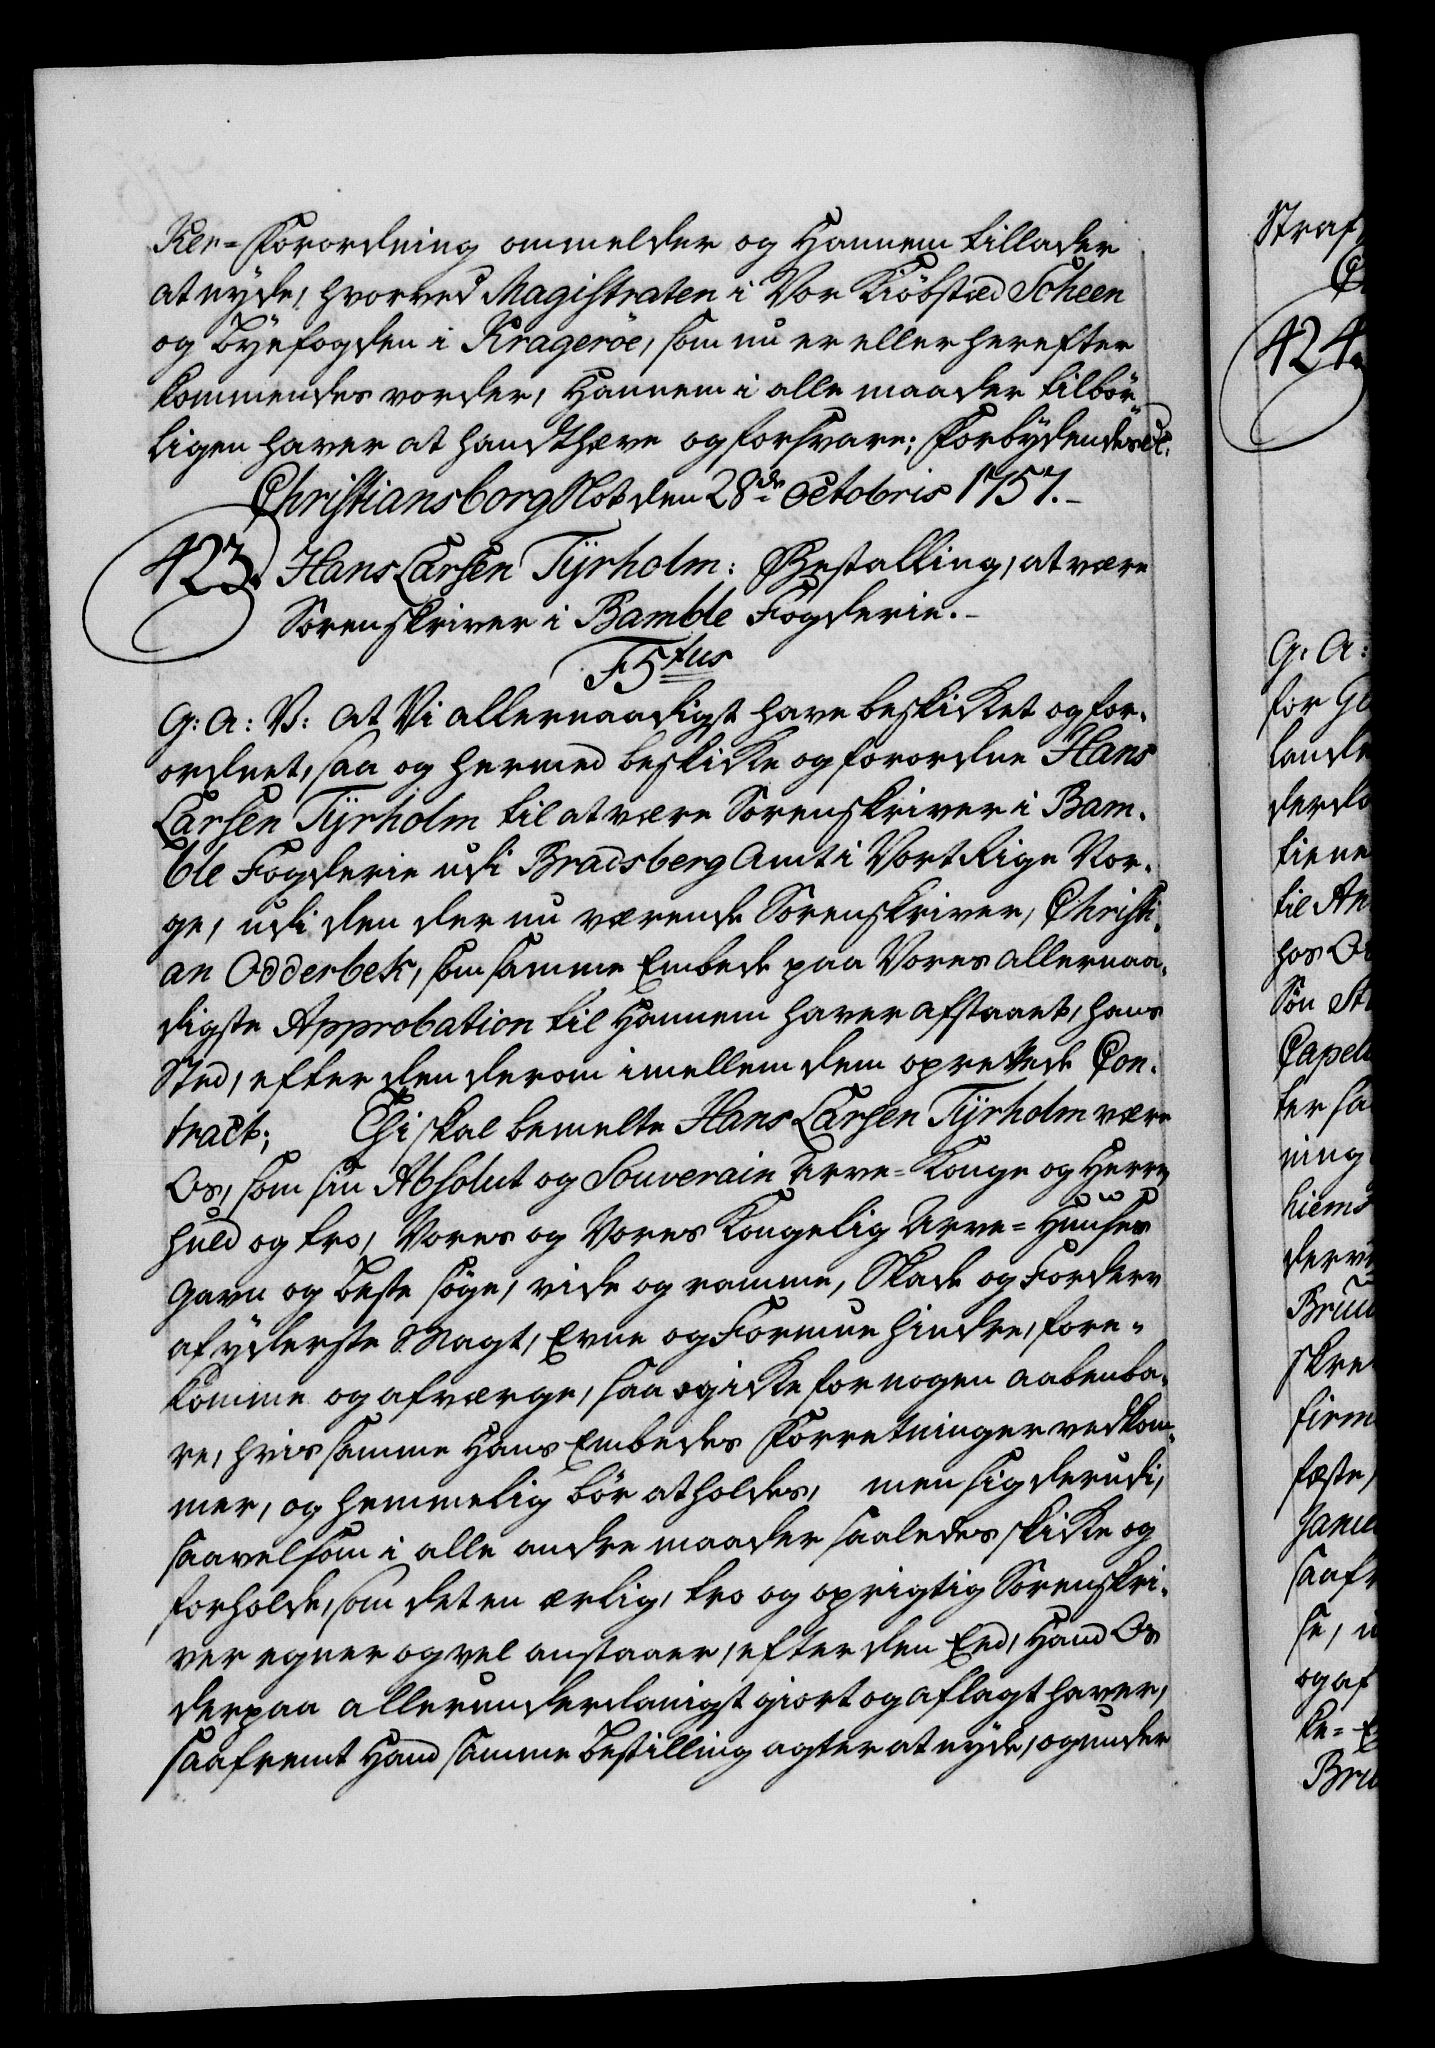 Ker=Forordning ommelder og Hannem tillader
at nyde, hvorved Magistraten i Vor Kiöbsted Scheen
og Býefogden i Krageröe, som nu er eller herefter
kommendes vorder, Hannem i alle maader tilbör-
ligen haver at handthæve og forsvare; Forbydendes &c.
Christiansborg Slot den 28de Octobris 1757.-
423. Hans Larsen Tÿrholm: Bestalling, at være
Sorenskriver i Bamble Fogderie.-
F5tus
G: A: V: At Vi allernaadigst have beskikket og for-
ordnet, saa og hermed beskikke og forordne Hans
Larsen Tÿrholm til at være Sorenskriver i Bam-
ble Fogderie udi Bradsberg Amt i Vort Rige Nor-
ge, udi den der nu værende Sorenskriver, Christi-
an Odderbek, som samme Embede paa Vores allernaa-
digste Approbation til Hannem haver afstaaet, hans
Sted, efter den derom imellem dem oprettede Con-
tract; Thi skal bemelte Hans Larsen Tÿrholm være
Os, som sin Absolut og Souverain Arve=Konge og Herre
huld og tro, Vores og Vores Kongelig Arve=Huuses
Gavn og beste söge, vide og ramme, Skade og Forderv
af yderste Magt, Evne og Formue hindre, fore-
komme og afværge, saa og ikke for nogen aabenba-
re, hvis samme Hans Embedes Forretninger vedkom-
mer, og hemmelig bör at holdes, men sig derudi,
saavelsom i alle andre maader saaledes skikke og
forholde, som det en ærlig, tro og oprigtig Sorenskri-
ver egner og vel anstaaer, efter den Eed, Hand Os
derpaa allerunderdanigst giort og aflagt haver,
saafremt Hand samme Bestilling agter at nyde, og under
Straf
424.
G: A:
for Ge
lande
til An
hos Os
Sön
Capel
ter sa
ning
hiems
Bruu
skre
firm
fæste,
saafr
se, u
og af
Bru